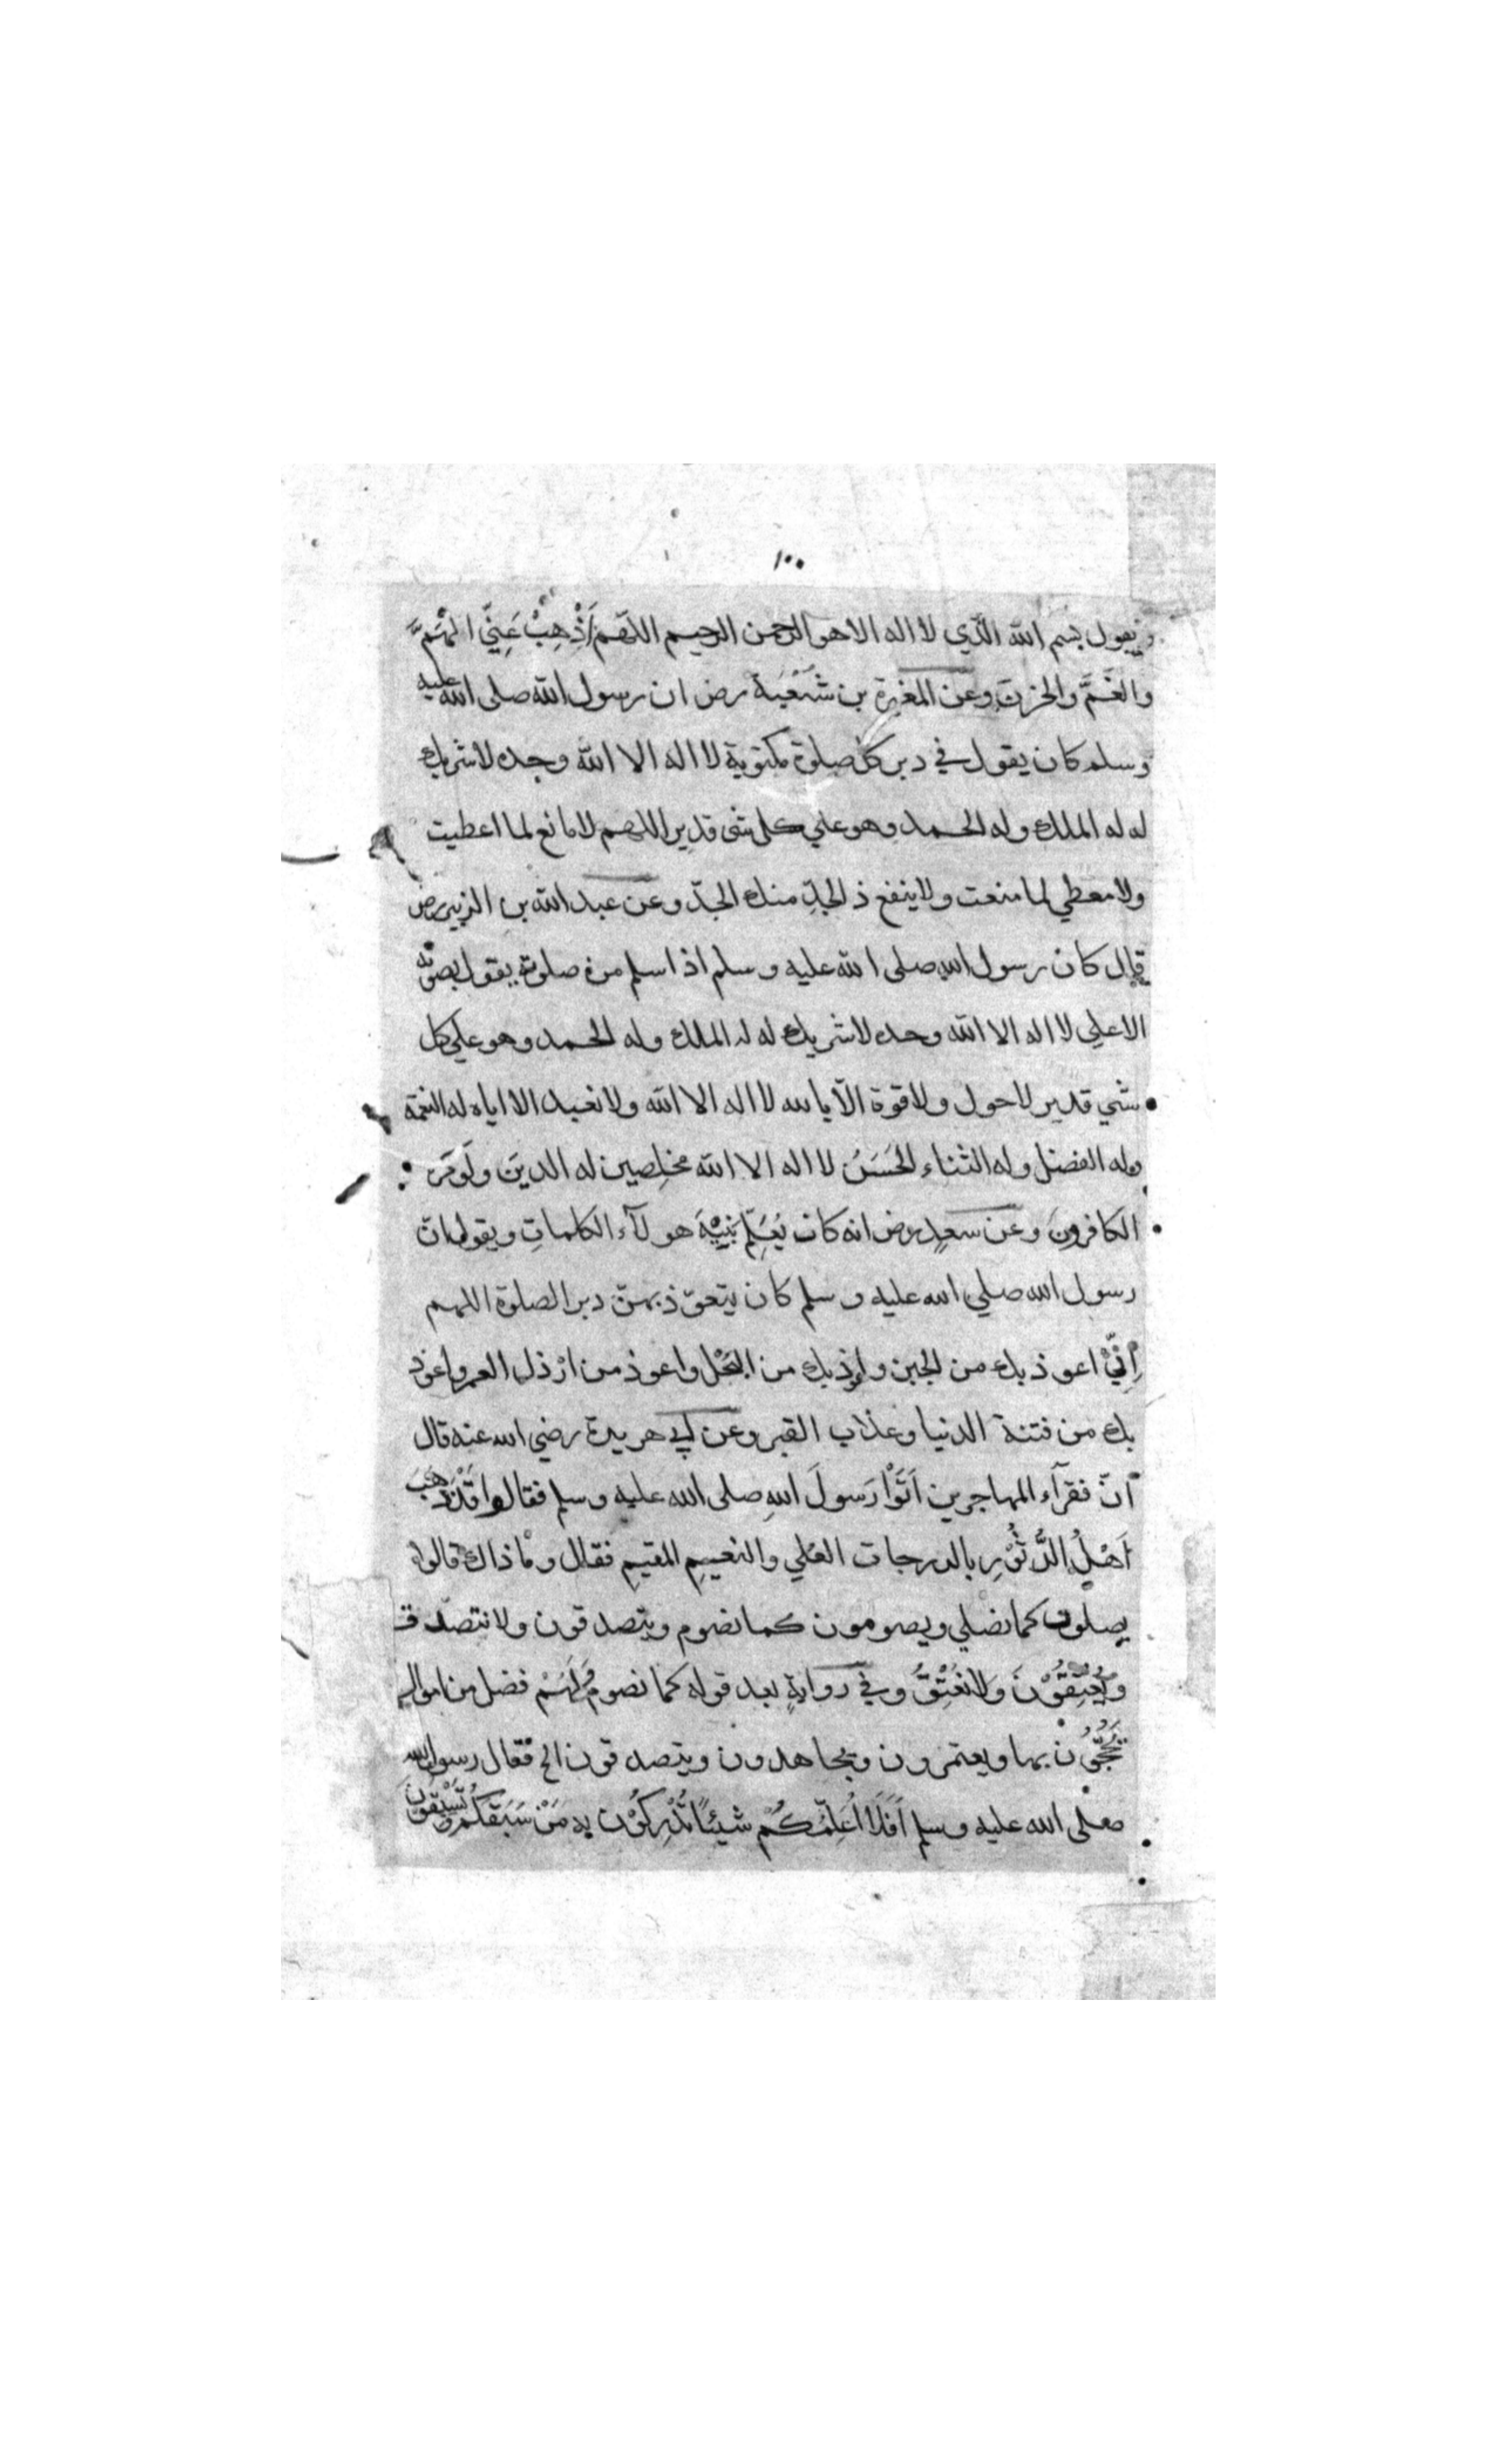 ١٠٠
ويقول بسم الله الَّذي لا اله الا هو الرحمن الرحيم اللهم اَذْهِبْ عَنِّي الهَمَّ
والغَمَّ والحزنَ وعن المغيرة بن شُعْبَة رض ان رسول الله صلى الله عليه
وسلم كان يقول في دبر كل صلوة مكتوبة لا اله الا الله وحده لا شريك
له له الملك وله الحمد وهو علي كل شئ قدير اللهم لا مانع لما اعطيت
ولا معطي لما منعت ولا ينفع ذ الجدِّ منك الجدّ وعن عبد الله بن الزبير رض
قال كان رسول الله صلى الله عليه وسلم اذا سلم من صلوته يقول بصوته
الاعلي لا اله الا الله وحده لا شريك له له الملك وله الحمد وهو علي كل
شي قدير لا حول ولا قوة الّا بالله لا اله الا الله ولا نعبد الا اياه له النعمة
وله الفضل وله الثناء الحَسَنُ لا اله الا الله مخلِصين له الدين ولَو كره
الكافرونَ وعن سعدٍ رض انه كان يُعَلِّم بَنِيْهِ هولآء الكلماتِ ويقول ان
رسول الله صلي الله عليه وسلم كان يتعوّذ بهنّ دبر الصلوة اللهم
اِنِّيْ اعوذ بك من الجبن واعوذ بك من البُخْل واعوذ من ارْذل العمر واعوذ
بك من فتنة الدنيا وعذاب القبر وعن ابي هريرة رضي الله عنه قال
انّ فقرآء المهاجرين اَتَوْا رَسولَ اللهِ صلى الله عليه وسلم فقالوا قَدْ ذَهَبَ
اَهْلُ الدُّثُوْرِ بالدرجات العُلي والنعيمِ المقيمِ فقال وما ذاك قالوا
يصلون كما نصلي ويصومون كما نصوم ويتصدقون ولا نتصدّق
ويُعْتِقُوْنَ ولا نُعْتِقُ وفي روايةٍ بعد قوله كما نصوم وَلَهُمْ فضل من اموالٍ
يَحُجُّوْن بها ويعتمرون ويجاهدون ويتصدقون الخ فقال رسول الله
صلى الله عليه وسلم اَفَلَا اُعَلِّمُكُمْ شيئاً تُدْرِكُوْن به مَنْ سَبَقَكُمْ وتَسْبِقُوْنَ